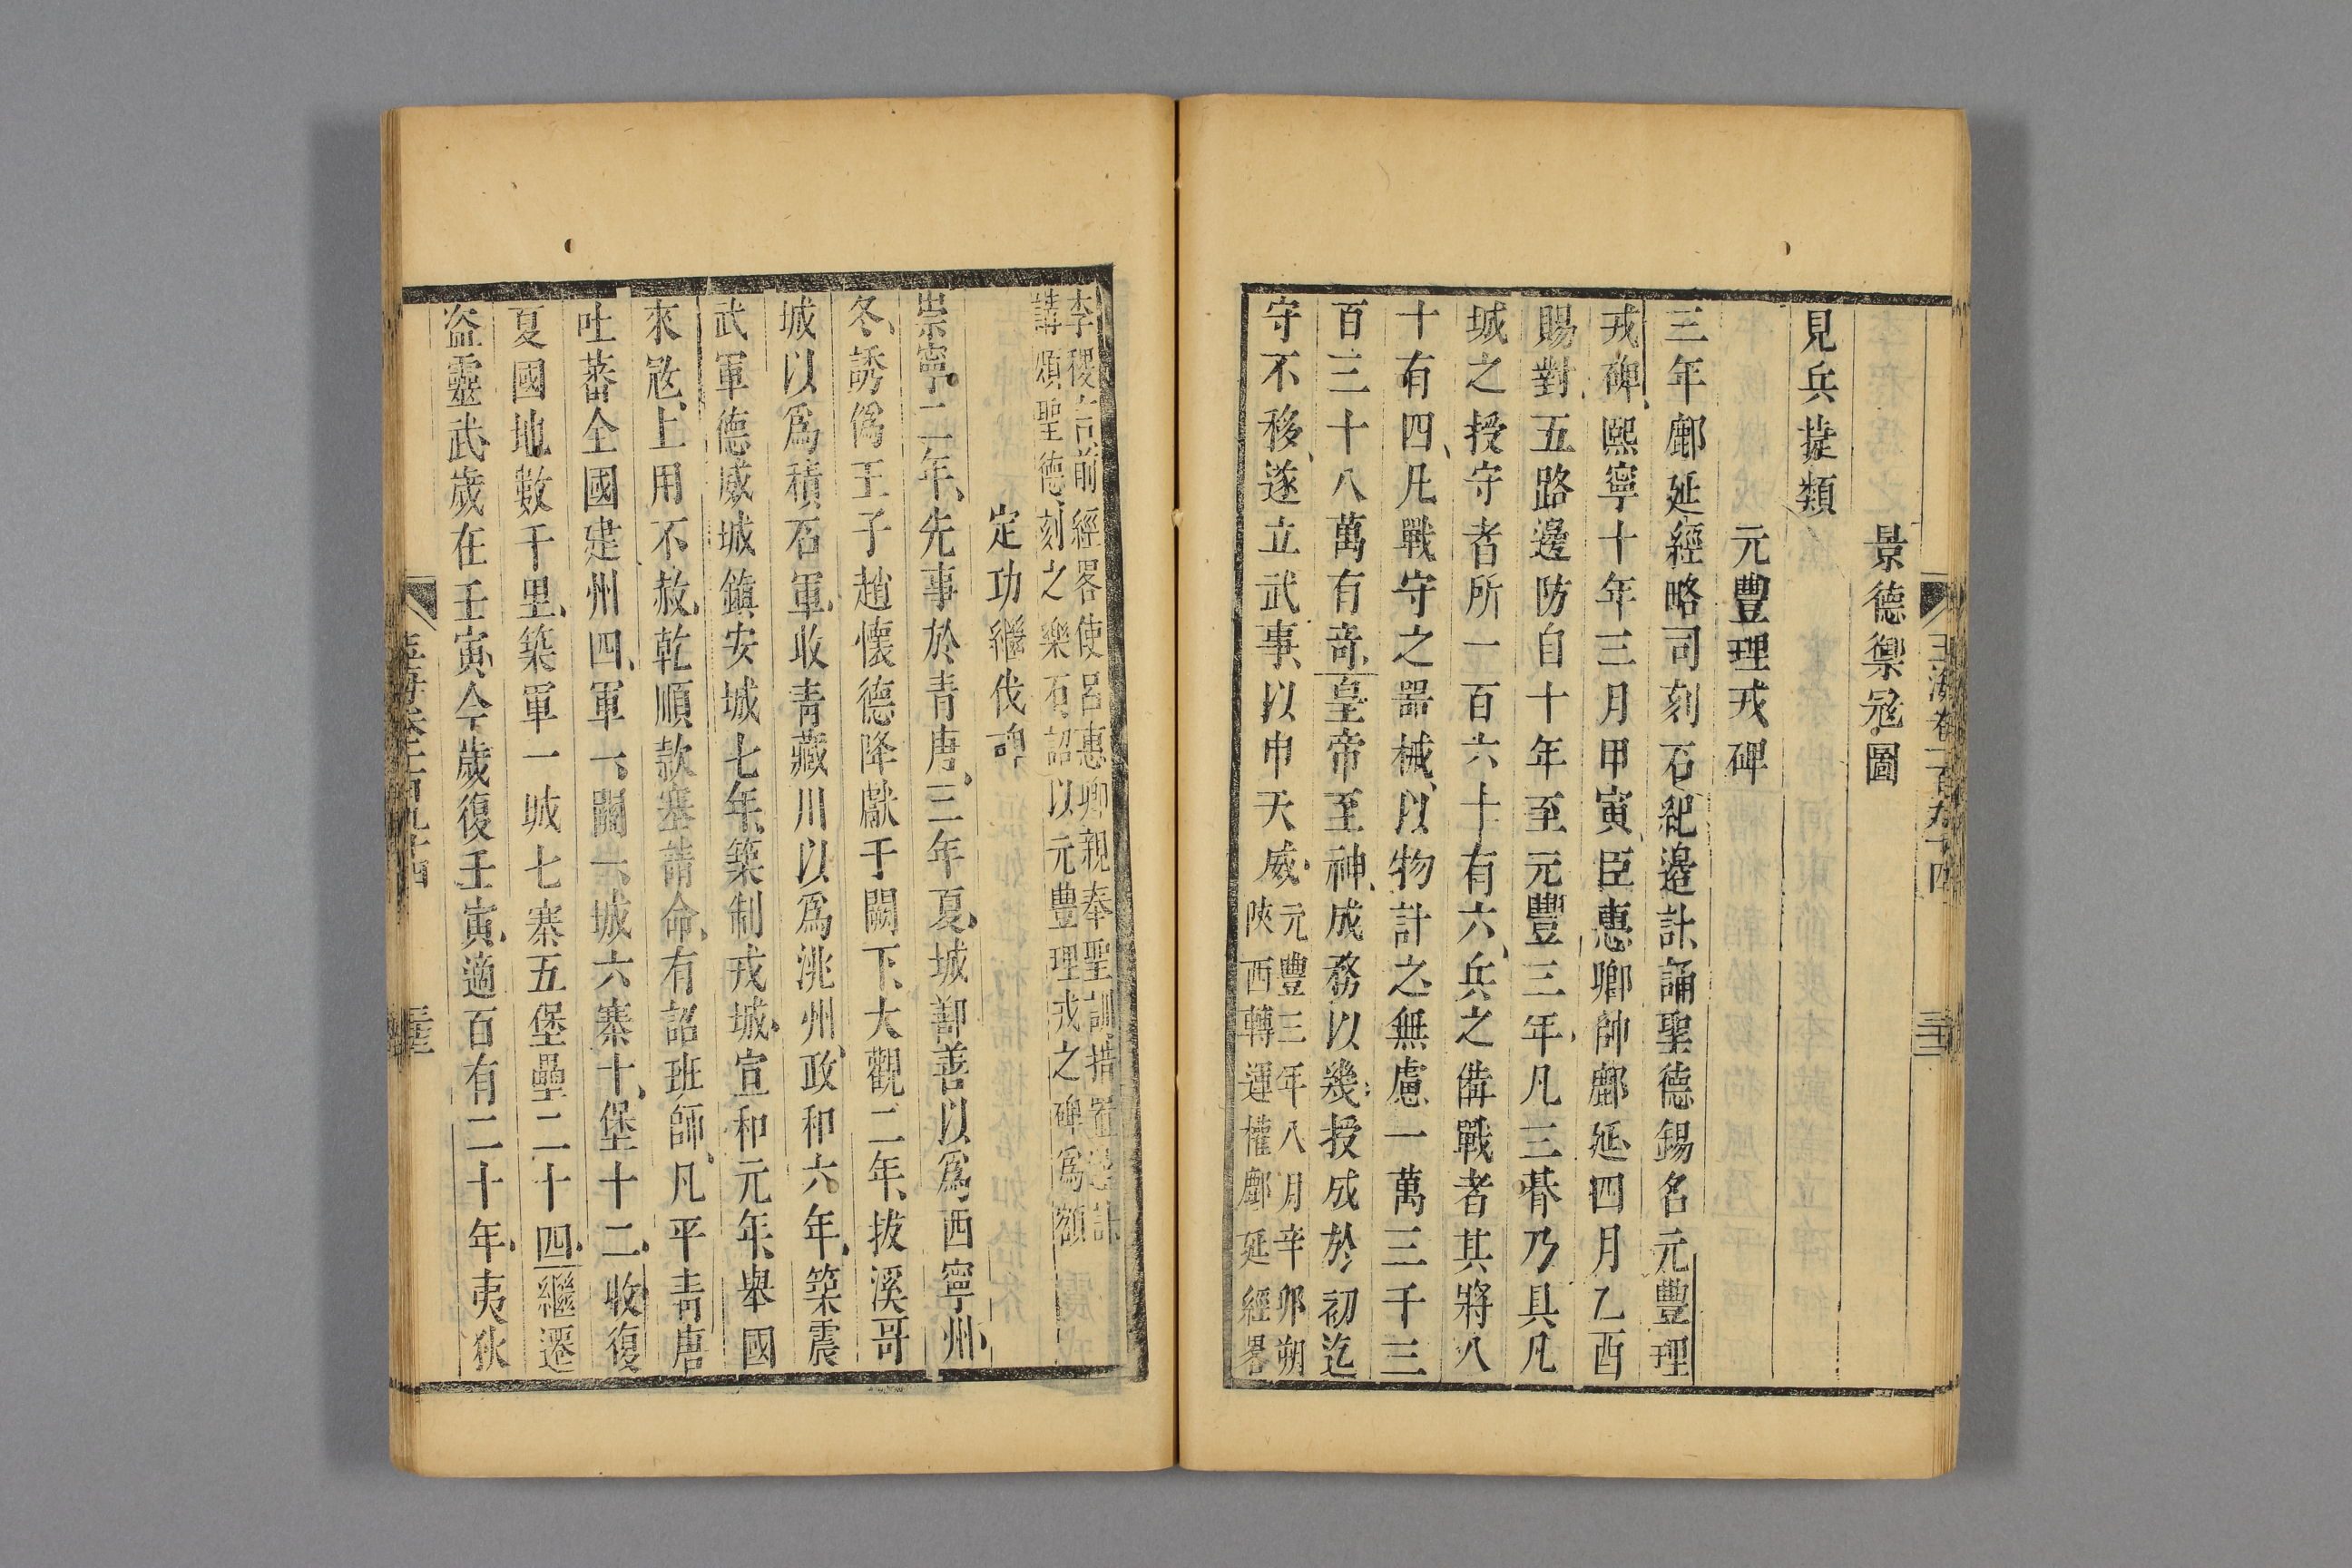 玉海卷一百九十四
景德禦寇圖
見兵捷類
元豐理戎碑
三年鄜延經略司刻石紀邊計誦聖德錫名元豐理
戎碑熙寧十年三月甲寅臣惠卿帥鄜延四月乙酉
賜對五路邊防自十年至元豐三年凡三朞乃具凡
城之授守者所一百六十有六兵之備戰者其將八
十有四凡戰守之器械以物計之無慮一萬三千三
百三十八萬有奇皇帝至神成務以幾授成於初迄
守不移遂立武事以申天威元豐三年八月辛卯朔
陝西轉運權鄜延經畧
李稷言前經畧使呂惠卿親奉聖訓措置邊計
講頌聖德刻之樂石詔以元豐理戎之碑爲額
定功繼伐碑
崇寧二年先事於青唐三年夏城鄯善以爲西寧州
冬誘僞王子趙懷德降獻于闕下大觀二年拔溪哥
城以爲積石軍收青藏川以爲洮州政和六年築震
武軍德威城鎮安城七年築制戎城宣和元年舉國
來寇上用不赦乾順款塞請命有詔班師凡平青唐
吐蕃全國建州四軍一關一城六寨十堡十二收復
夏國地數千里築軍一城七寨五堡壘二十四繼遷
盗靈武歲在壬寅今歲復壬寅適百有二十年夷狄
玉海卷一百九十四